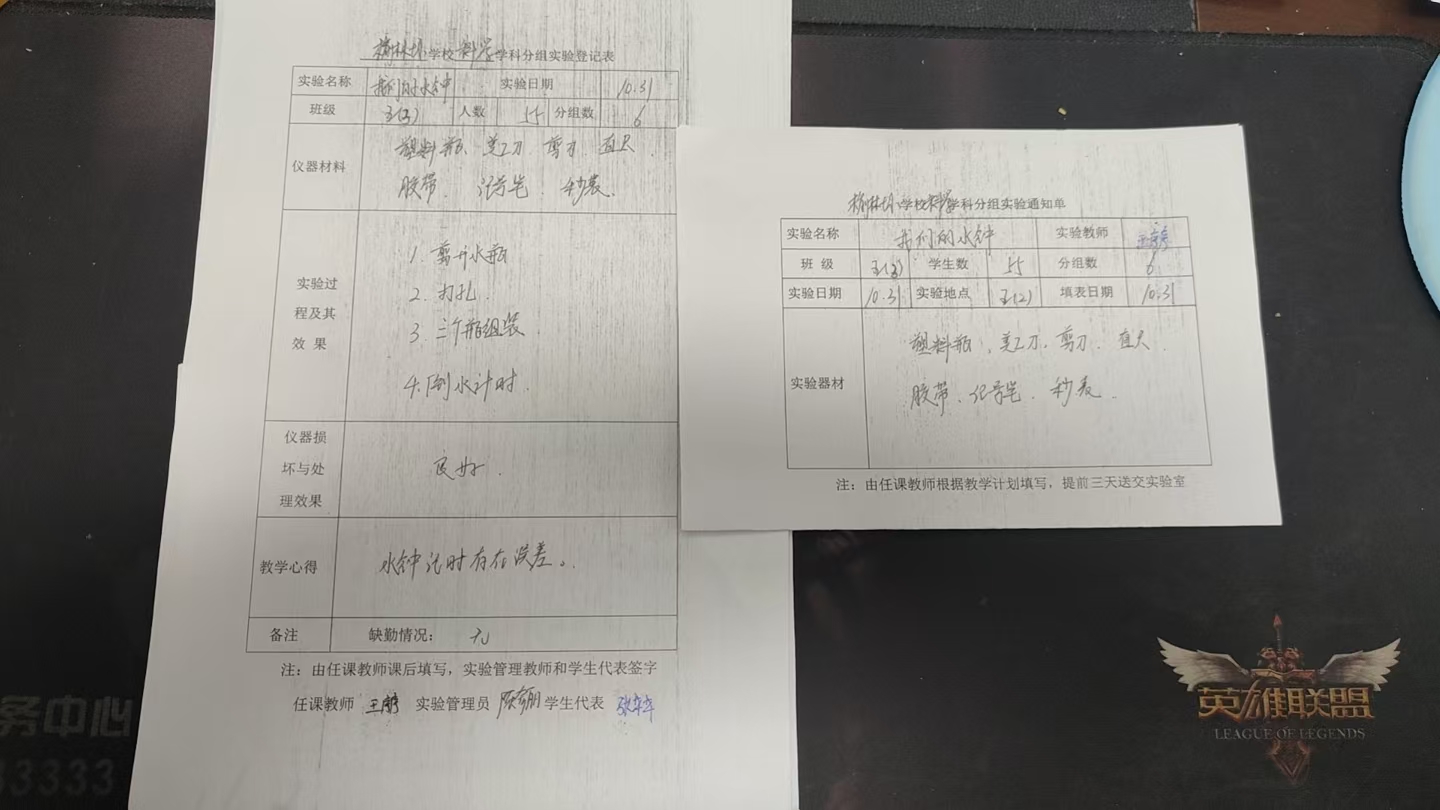 学校科学学科分组实验登记表
实验名称 我们的水钟 实验日期 10.31
班级 五(3) 人数 55 分组数 6
仪器材料 塑料瓶、美工刀、剪刀、直尺、
胶带、记号笔、秒表、
实验过程及其效果
1. 剪开水瓶
2. 打孔.
3. 三个瓶组装.
4. 倒水计时.
仪器损坏与处理效果 良好.
教学心得 水钟记时存在误差。
备注 缺勤情况: 无
注:由任课教师课后填写,实验管理教师和学生代表签字
任课教师 实验管理员 学生代表
学校科学学科分组实验通知单
实验名称 我们的水钟 实验教师
班 级 五(3) 学生数 55 分组数 6
实验日期 10.31 实验地点 五(2) 填表日期 10.31
实验器材 塑料瓶、美工刀、剪刀、直尺、
胶带、记号笔、秒表.
注:由任课教师根据教学计划填写,提前三天送交实验室
务中心
33333
英雄联盟
LEAGUE OF LEGENDS